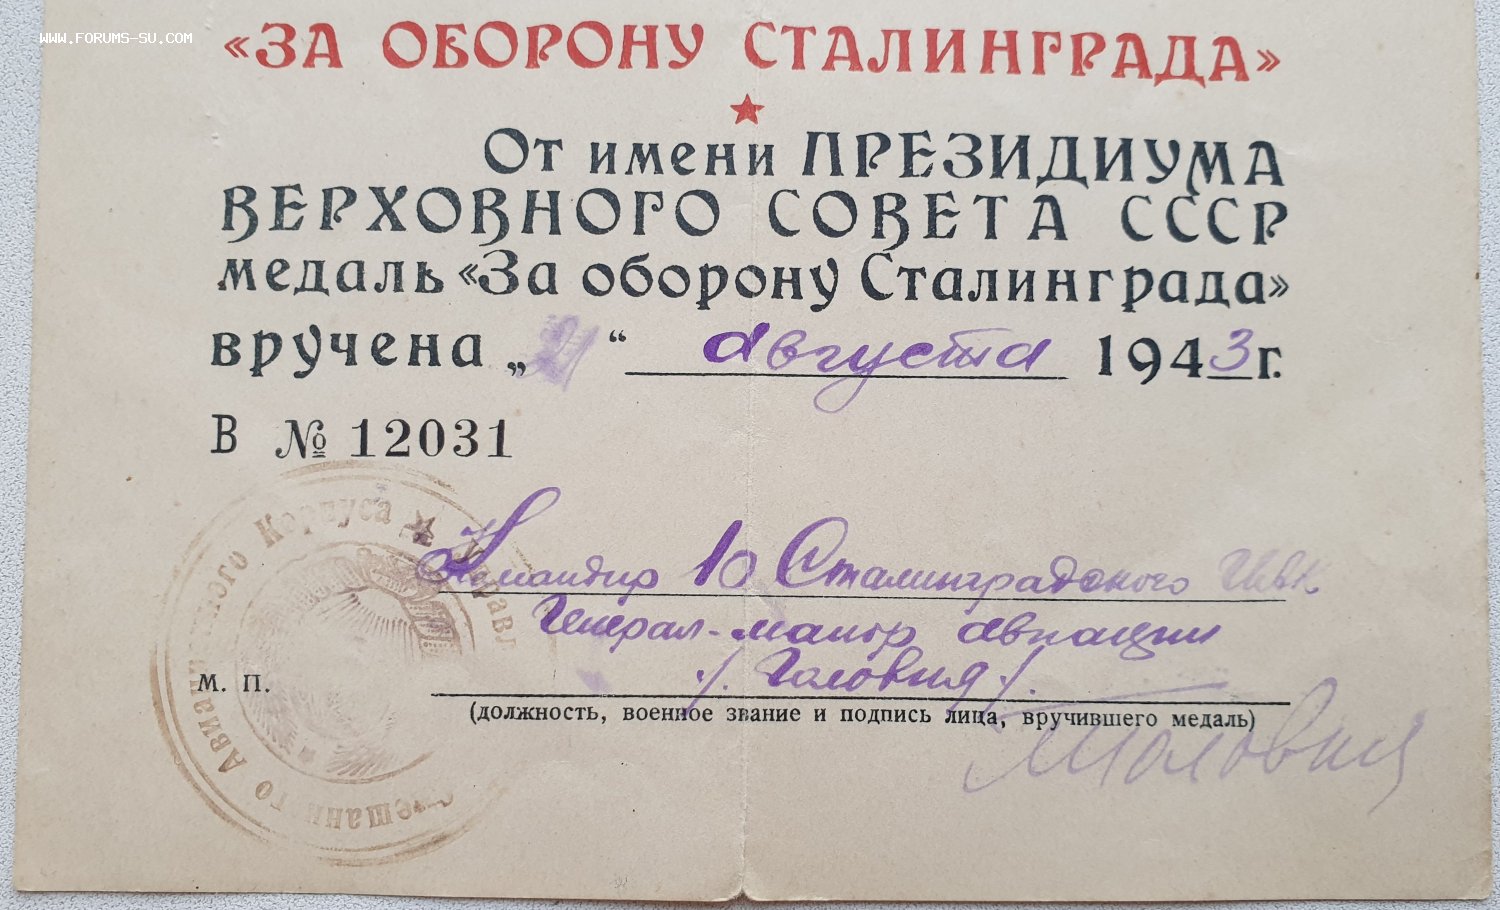 WWW.FORUMS-SU.COM
«ЗА ОБОРОНУ СТАЛИНГРАДА»
От имени ПРЕЗИДИУМА
ВЕРХОВНОГО СОВЕТА СССР
медаль «За оборону Сталинграда»
вручена „21“ августа 1943 г.
В № 12031
Командир 10 Сталинградского
Генерал-майор авиации
/. Головня /.
М. П.
(должность, военное звание и подпись лица, вручившего медаль)
Головня
Авиационного Корпуса ★ Управл